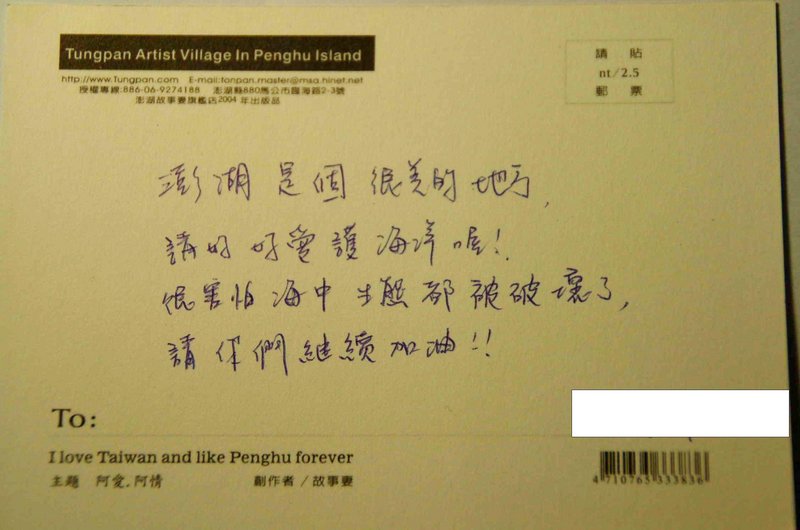 Tungpan Artist Village In Penghu Island
http://www.Tungpan.com E-mail:tonpan.master@msa.hinet.net
授權專線:886-06-9274188 澎湖縣880馬公市臨海路2-3號
澎湖故事妻旗艦店2004年出版品
請貼
nt/2.5
郵票
澎湖是個很美的地方,
請好好愛護海洋喔!
很害怕海中生態都被破壞了,
請你們繼續加油!!
To:
I love Taiwan and like Penghu forever
主題 阿愛.阿情 創作者/故事妻
4 710765 333836